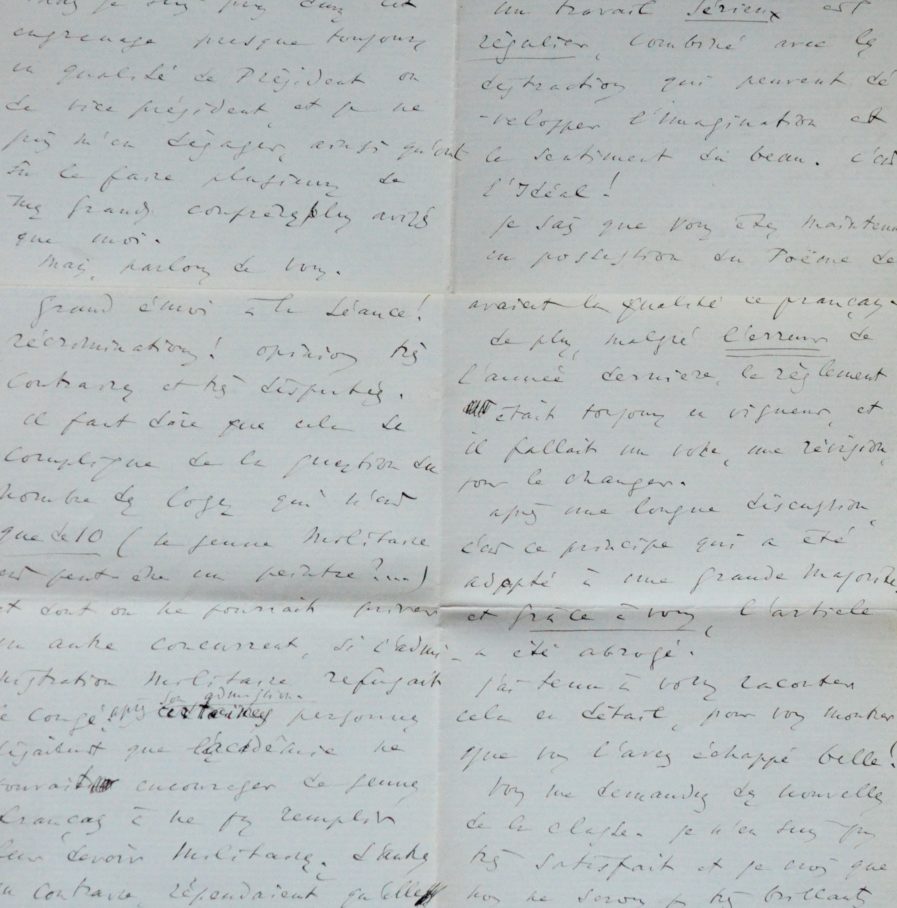 engrenage presque toujours
en qualité de Président ou
de vice président, et je ne
puis m'en dégager, ainsi qu'ont
dû le faire plusieurs de
mes grands confrères plus avisés
que moi.
Mais, parlons de vous.
Grand émoi à la Séance!
récriminations! opinions très
contraires et très disputées.
Il faut dire que cela se
complique de la question du
nombre des loges qui n'est
que de 10 (le jeune Militaire
est peut-être un peintre?...)
et dont on ne pourrait priver
un autre concurrent, si l'admi-
nistration Militaire refusait
le congé, après son admission.
certaines personnes
disaient que l'académie ne
pouvait encourager de jeunes
français à ne pas remplir
leur devoir Militaire. D'autres
au contraire, répondaient qu'elles
un travail sérieux et
régulier, combiné avec les
distractions qui peuvent dé
-velopper l'imagination et
le sentiment du beau. C'est
l'Idéal!
Je sais que vous êtes maintenant
en possession du Poëme de
avaient la qualité de français.
De plus, malgré l'erreur de
l'année dernière, le règlement
était toujours en vigueur, et
il fallait un vote, une révision,
pour le changer.
après une longue discussion,
c'est ce principe qui a été
adopté à une grande majorité,
et grâce à vous, l'article
a été abrogé.
J'ai tenu à vous raconter
cela en détail, pour vous montrer
que vous l'avez échappé belle!
Vous me demandez des nouvelles
de la classe. Je n'en suis pas
très satisfait et je crois que
nous ne serons pas très brillants